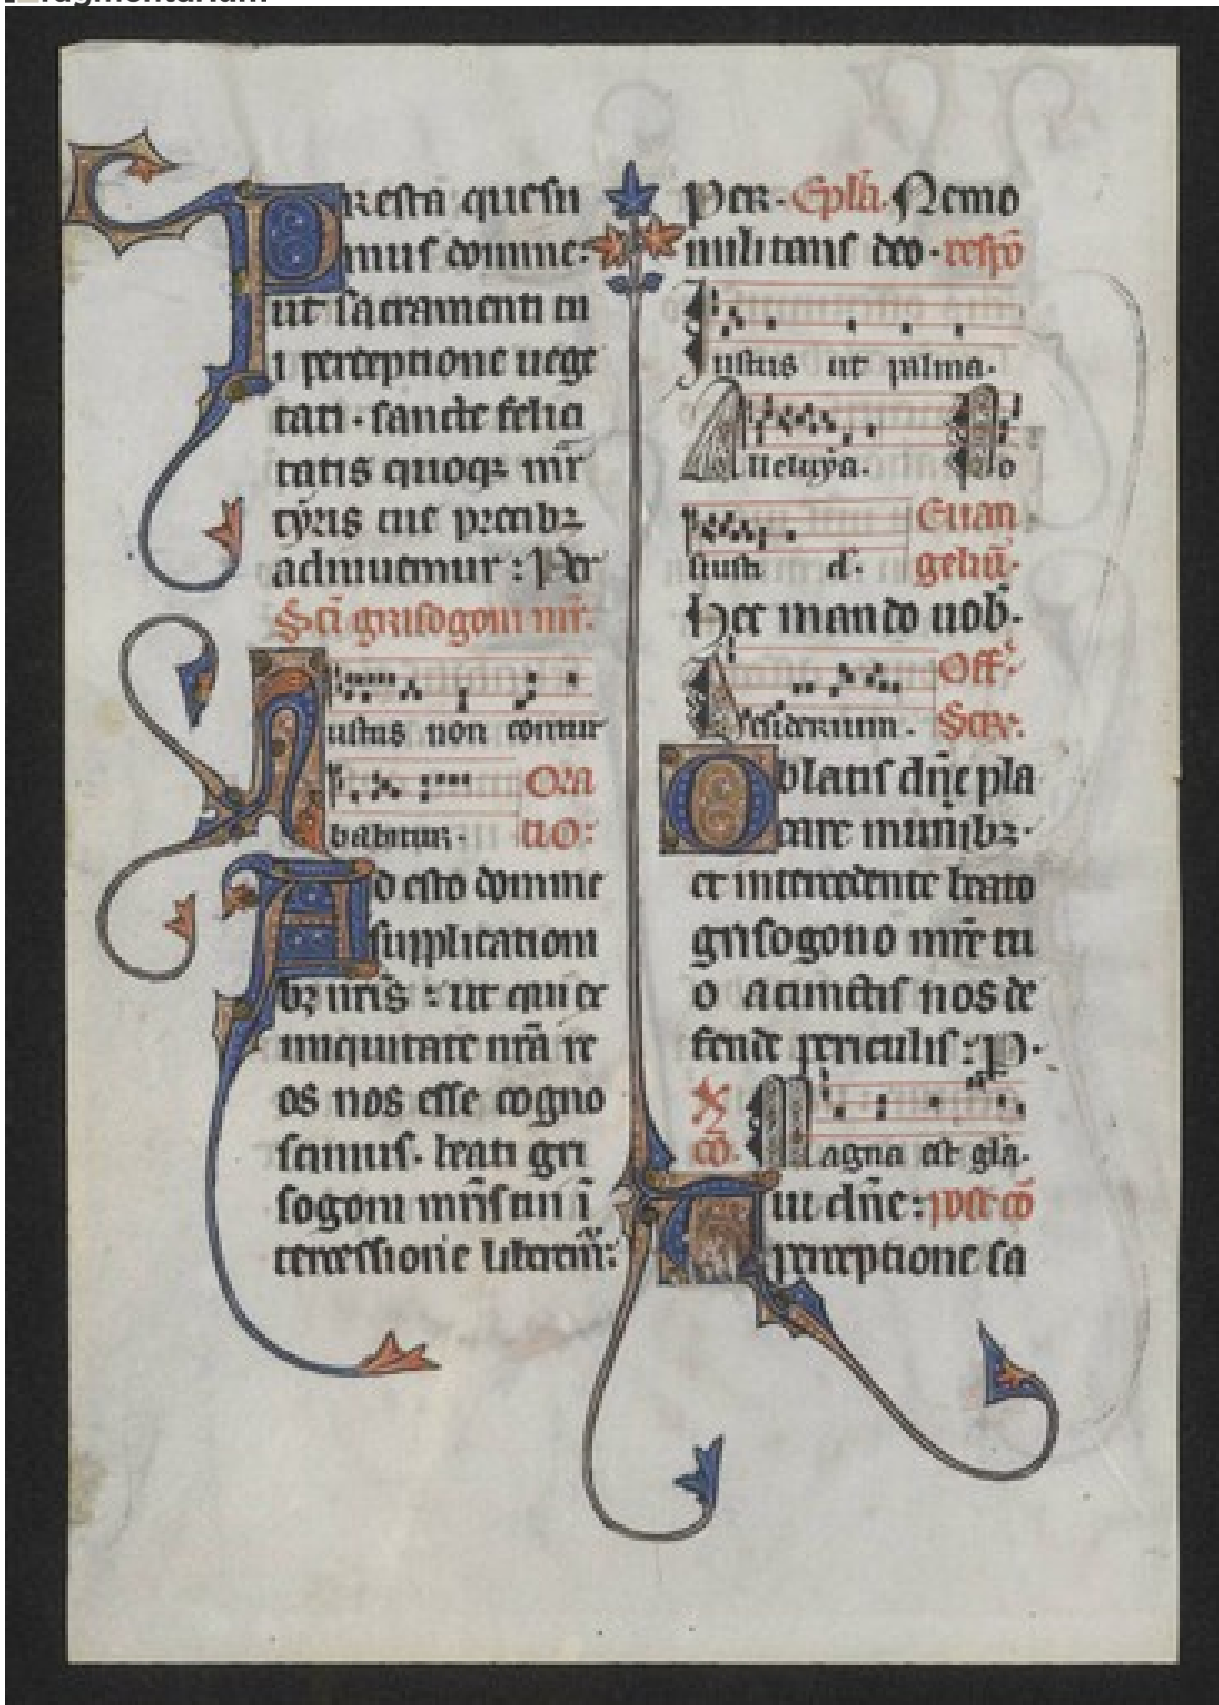 Presta quesu
mus domine:
ut sacramenti tu
i perceptione uege
tati. sancte felici
tatis quoqꝫ mr̄
tyris tue precibꝫ
adiuuemur: Per
Sc̄i grisogoni mr̄.
Iustus non contur
babitur. Ora
tio:
Adesto domine
supplicationi
bꝫ nr̄is: ut qui ex
iniquitate nr̄a re
os nos esse cogno
scimus. beati gri
sogoni mr̄is tui ī
tercessione liberem̄:
Per. Epl̄a. Nemo
militans deo. respō
Iustus ut palma.
Alleluya. Po
suisti d. Euan
geliū.
Hec mando uob̄.
Desiderium. Off̄.
Secr̄.
Oblatis dn̄e pla
care munibꝫ.
et intercedente beato
grisogono mr̄e tu
o a cunctis nos de
fende periculis: P.
cō. Magna est gla.
Tui dn̄e: post cō
perceptione sa